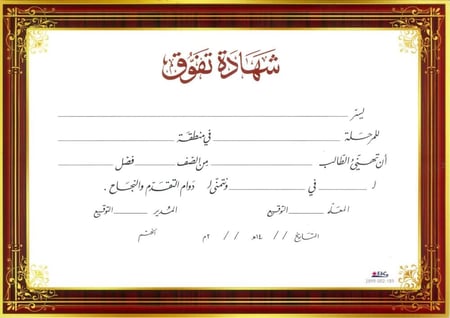 شهادة تفوق
يسر
للمرحلة في منطقة
أن تهنئ الطالب من الصف فصل
لـ في ونتمنى لـ دوام التقدم والنجاح .
المعلم التوقيع المدير التوقيع
التاريخ / / ١٤هـ / / ٢م الختم